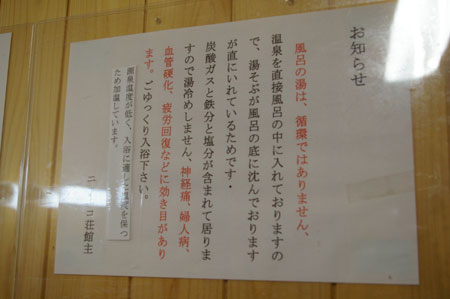 お知らせ
風呂の湯は、循環ではありません、
温泉を直接風呂の中に入れておりますの
で、湯そぶが風呂の底に沈んでおります
が直にいれているためです・
炭酸ガスと鉄分と塩分が含まれて居りま
すので湯冷めしません、神経痛、婦人病、
血管硬化、疲労回復などに効き目があり
ます。ごゆっくり入浴下さい。
源泉温度が低く、入浴に適した温度を保つ
ため加温しています。
荘館主